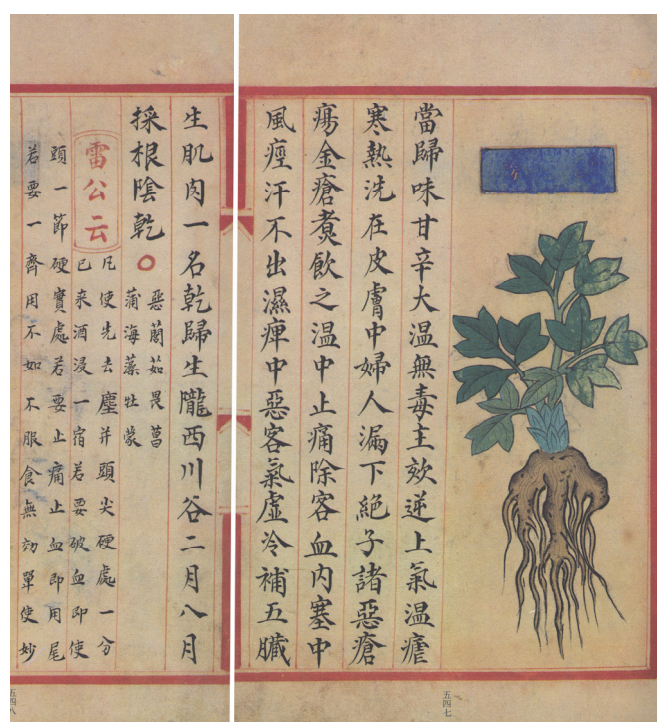 當歸味甘辛大溫無毒主欬逆上氣溫瘧
寒熱洗在皮膚中婦人漏下絕子諸惡瘡
瘍金瘡煑飲之溫中止痛除客血內塞中
風痓汗不出濕痺中惡客氣虛冷補五臟
生肌肉一名乾歸生隴西川谷二月八月
採根陰乾○
惡䕡茹畏菖
蒲海藻牡蒙
雷公云
凡使先去塵并頭尖硬處一分
已來酒浸一宿若要破血即使
頭一節硬實處若要止痛止血即用尾
若要一齊用不如不服食無効單使妙
五四七
五四八